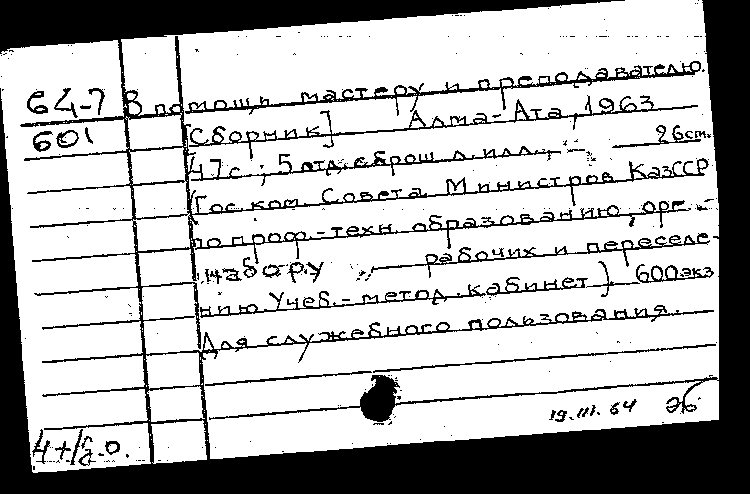 64-7 В помощь мастеру и преподавателю.
601 [Сборник] Алма-Ата, 1963
47 с.; 5 отд. сброш. л. илл., 26 cm.
(Гос. ком. Совета Министров КазССР
по проф.-техн. образованию, орг.
набору рабочих и переселе-
нию. Учеб.-метод. кабинет). 600 экз
Для служебного пользования.
19.III.64